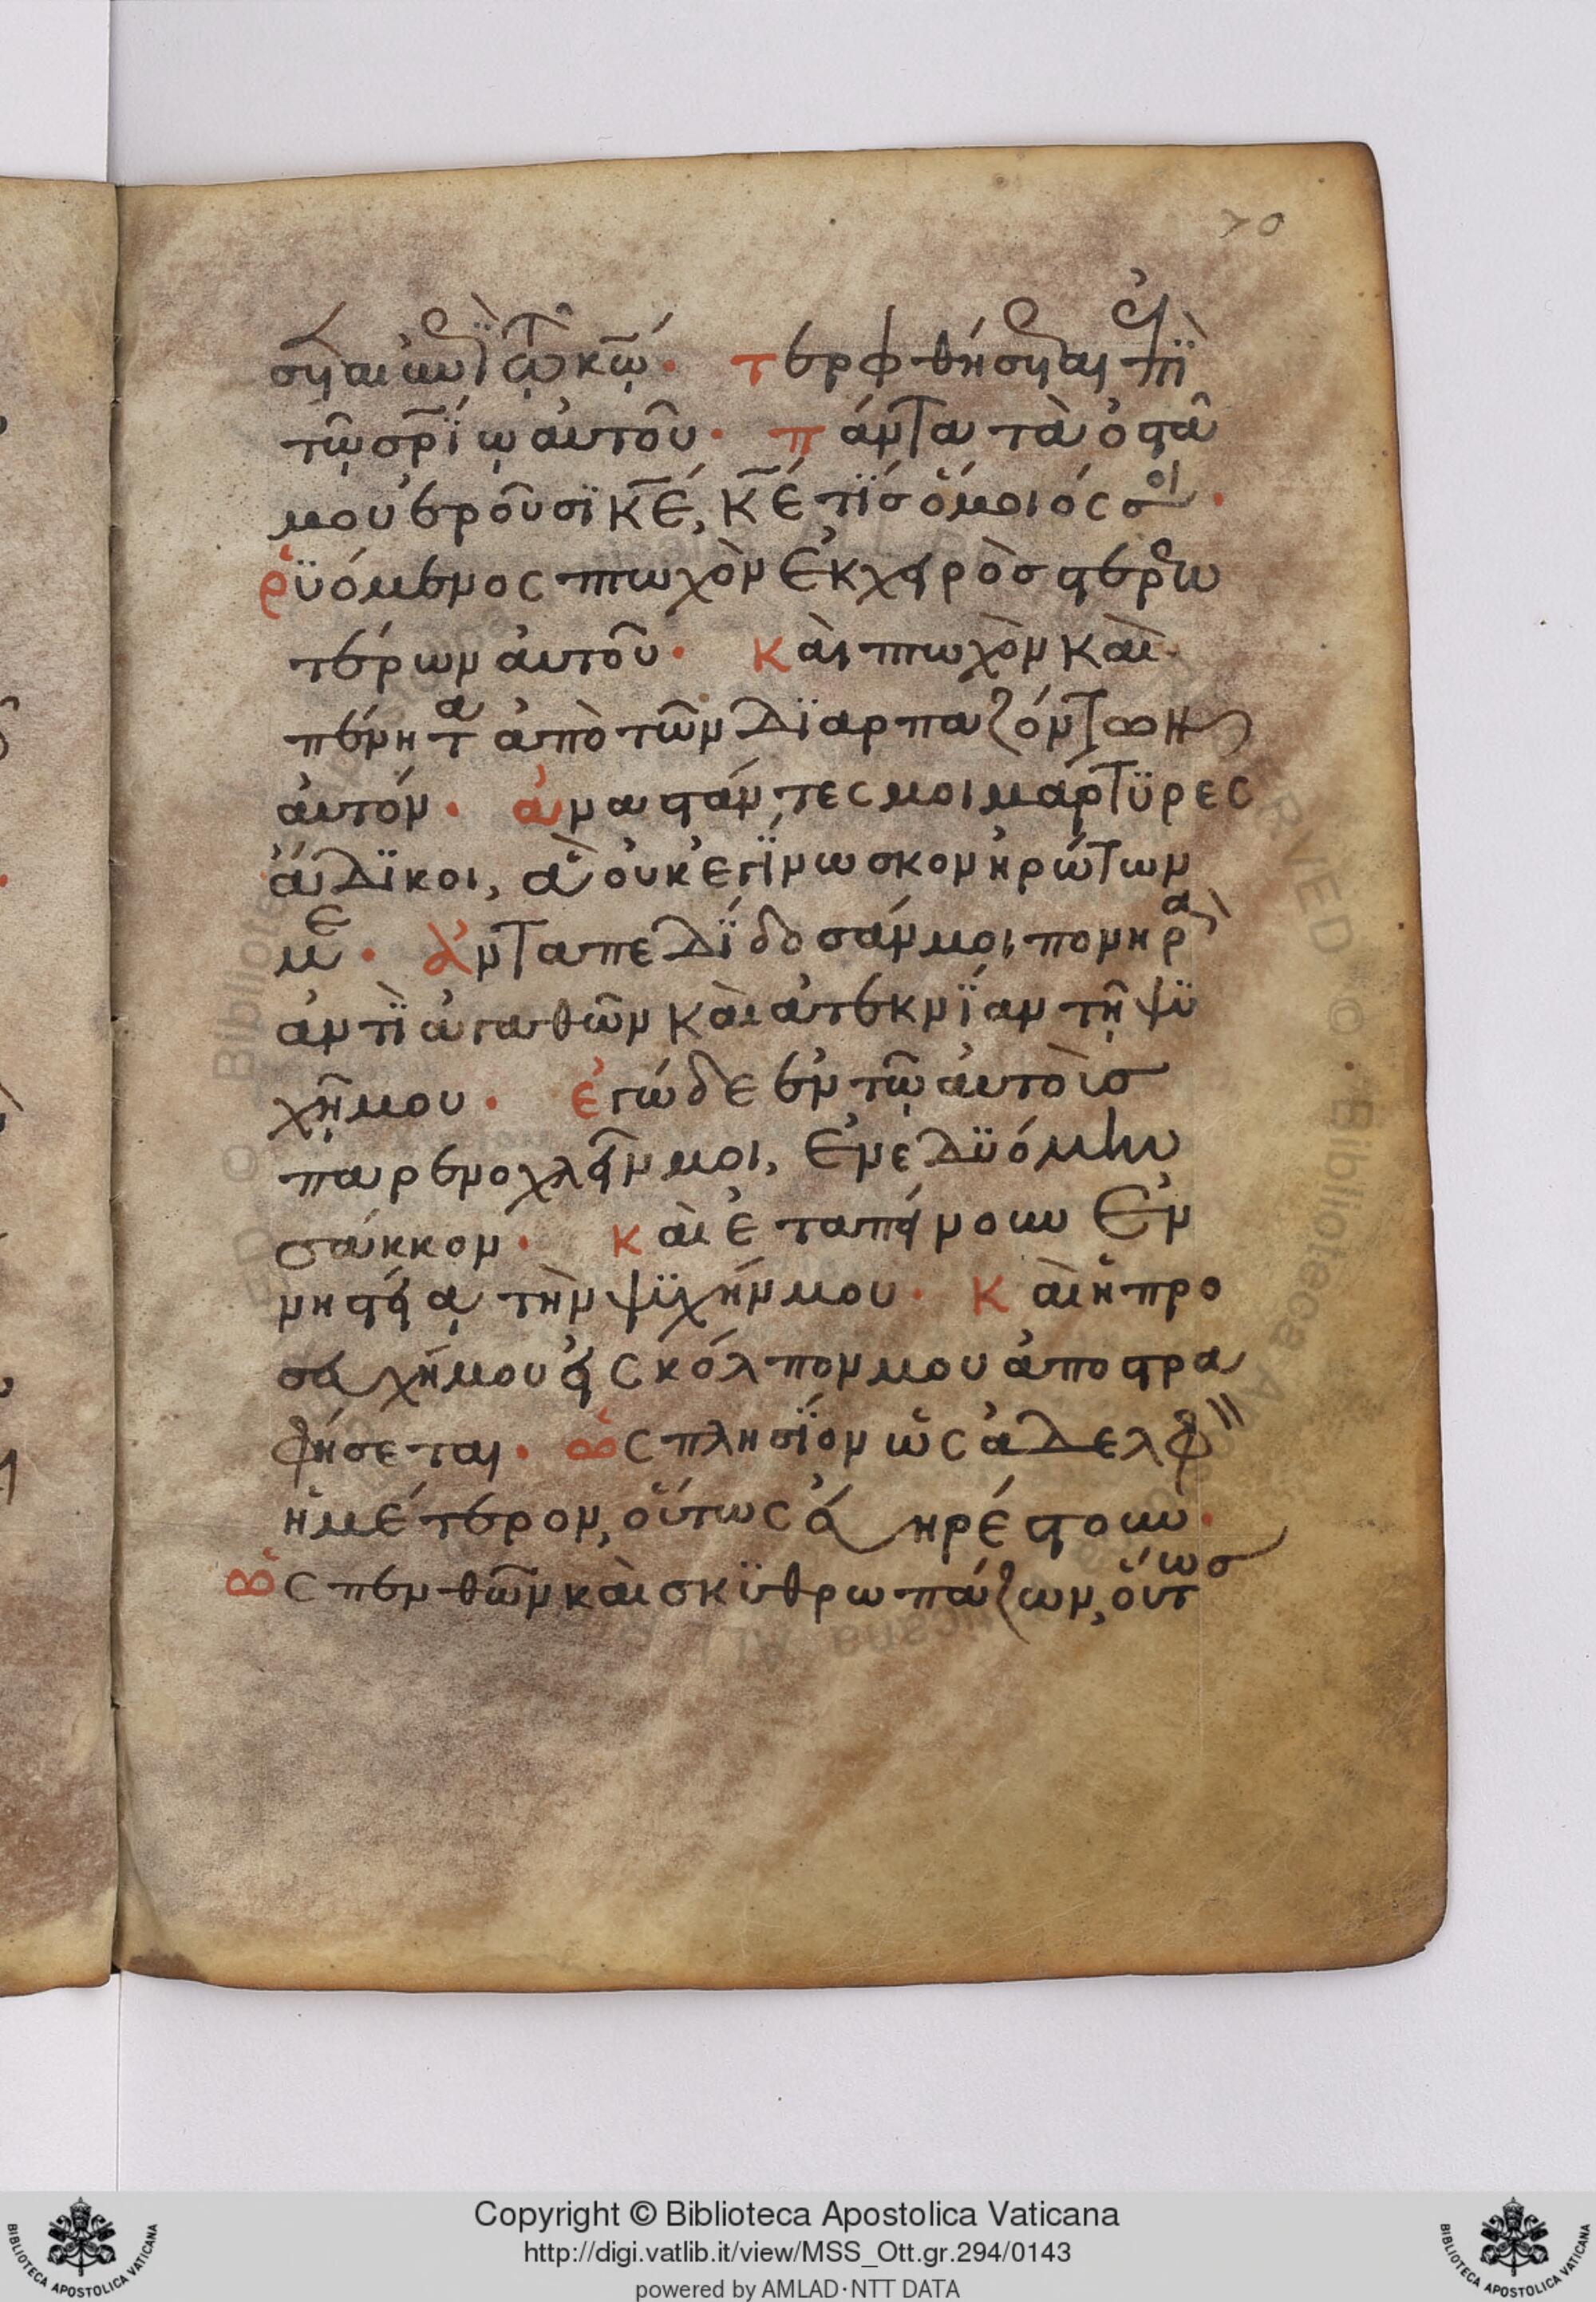 70
σεται ἐπὶ τῷ κῶ· τερφθήσεται ἐπὶ
τῷ σρΐω αὐτοῦ· πάντα τὰ ὀστᾶ
μου ἐροῦσϊ κ̅ε̅, κ̅ε̅ τίσ ὅμοιός σοι·
ῥϋόμενος πτωχὸν ἐκ χειρὸσ στερεω
τέρων αὐτοῦ· καὶ πτωχὸν καὶ
πένητα ἀπὸ τῶν διαρπαζόντων
αὐτόν· ἀναστάντες μοι μάρτϋρες
ἄδϊκοι, ἃ οὐκ ἐγίνωσκον ἠρώτων
με· ἀνταπεδίδοσάν μοι πονηρὰ
ἀντὶ ἀγαθῶν καὶ ἀτεκνΐαν τῇ ψϋ
χῇ μου· ἐγώ δε ἐν τῶ αὐτοὺσ
παρενοχλεῖν μοι, ἐνεδϋόμην
σάκκον· καὶ ἐταπείνουν ἐν
νηστείᾳ τὴν ψϋχήν μου· καὶ ἡ προ
σευχή μου εἰς κόλπον μου ἀποστρα
φήσεται· ὡς πλησΐον ὡς ἀδελφὸν
ἡμέτερον, οὕτως εὐηρέστουν·
ὡς πενθῶν καὶ σκϋθρωπάζων, οὕτως
Copyright © Biblioteca Apostolica Vaticana
http://digi.vatlib.it/view/MSS_Ott.gr.294/0143
powered by AMLAD·NTT DATA
BIBLIOTECA APOSTOLICA VATICANA
BIBLIOTECA APOSTOLICA VATICANA